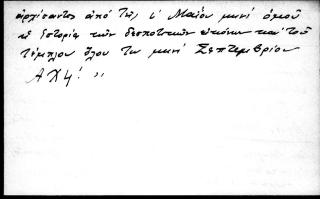 ἀρχίσαντος ἀπό τῶς ι΄ Μαΐου μηνί ὁμοῦ
ἡ ἱστορία τῶν δεσποτικῶν εἰκόνων καί τοῦ
τέμπλου ὅλου τω μηνί Σεπτεμβρίου
ΑΧϟ΄. ,,